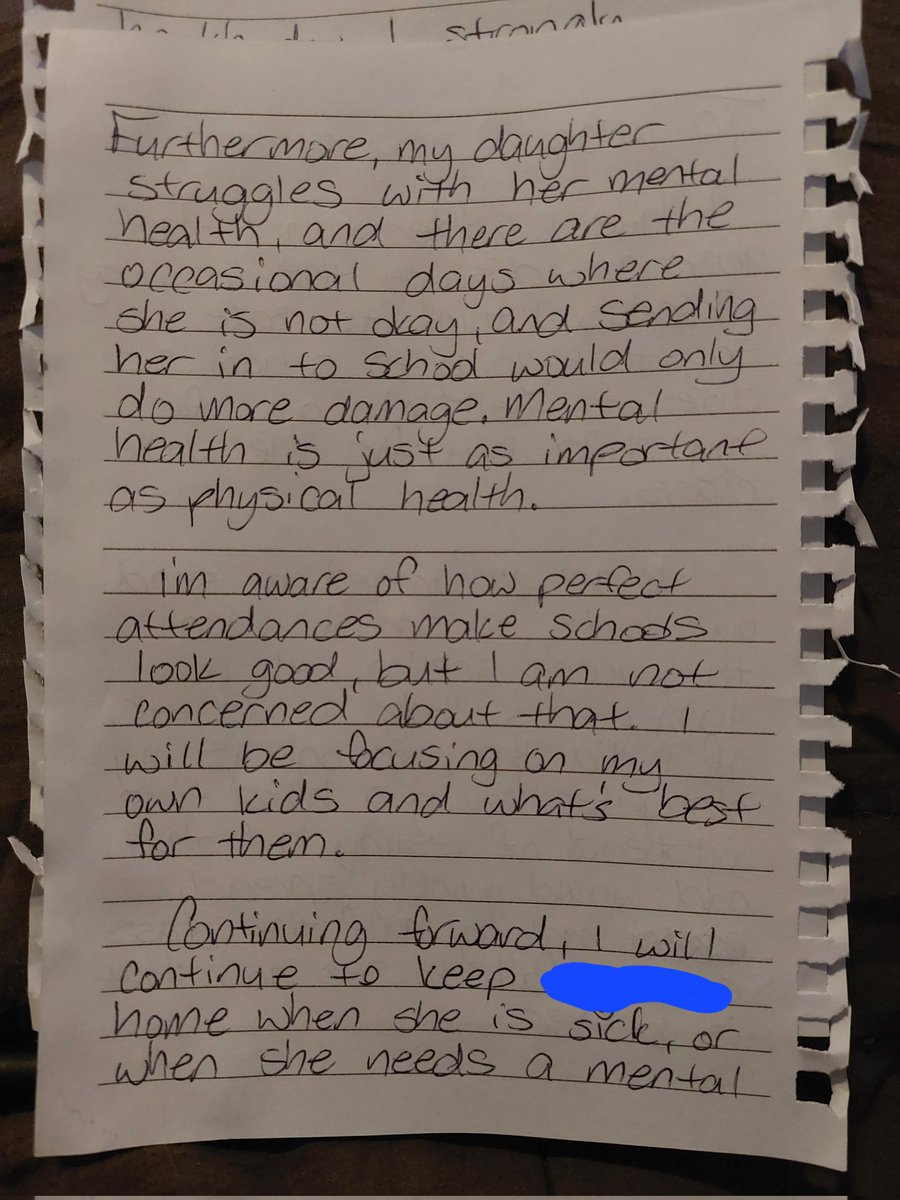 strongly
Furthermore, my daughter
struggles with her mental
health, and there are the
occasional days where
she is not okay, and sending
her in to school would only
do more damage. Mental
health is just as important
as physical health.
i'm aware of how perfect
attendances make schools
look good, but I am not
concerned about that. I
will be focusing on my
own kids and what's best
for them.
Continuing forward, I will
continue to keep
home when she is sick, or
when she needs a mental